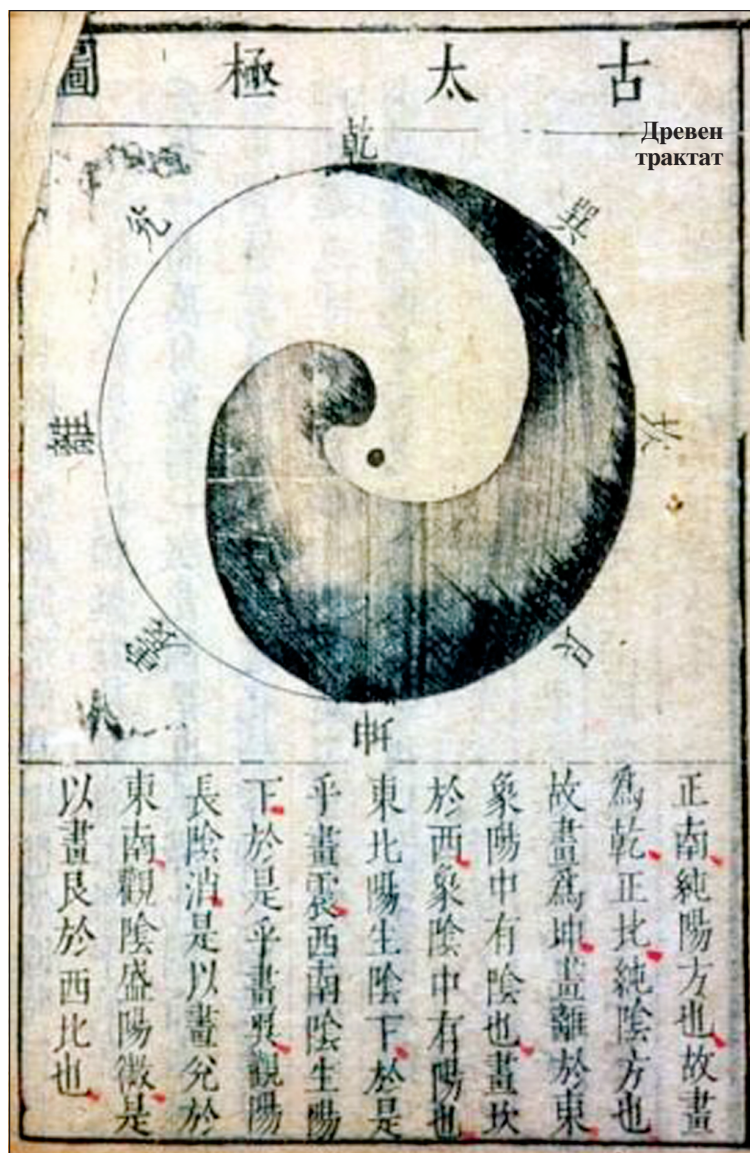 古太極圖
Древен
трактат
乾
兌
巽
離
坎
震
艮
坤
正南純陽方也故畫
爲乾正北純陰方也
故畫爲坤畫離於東
象陽中有陰也畫坎
於西象陰中有陽也
東北陽生陰下於是
乎畫震西南陰生陽
下於是乎畫巽觀陽
長陰消是以畫兌於
東南觀陰盛陽微是
以畫艮於西北也